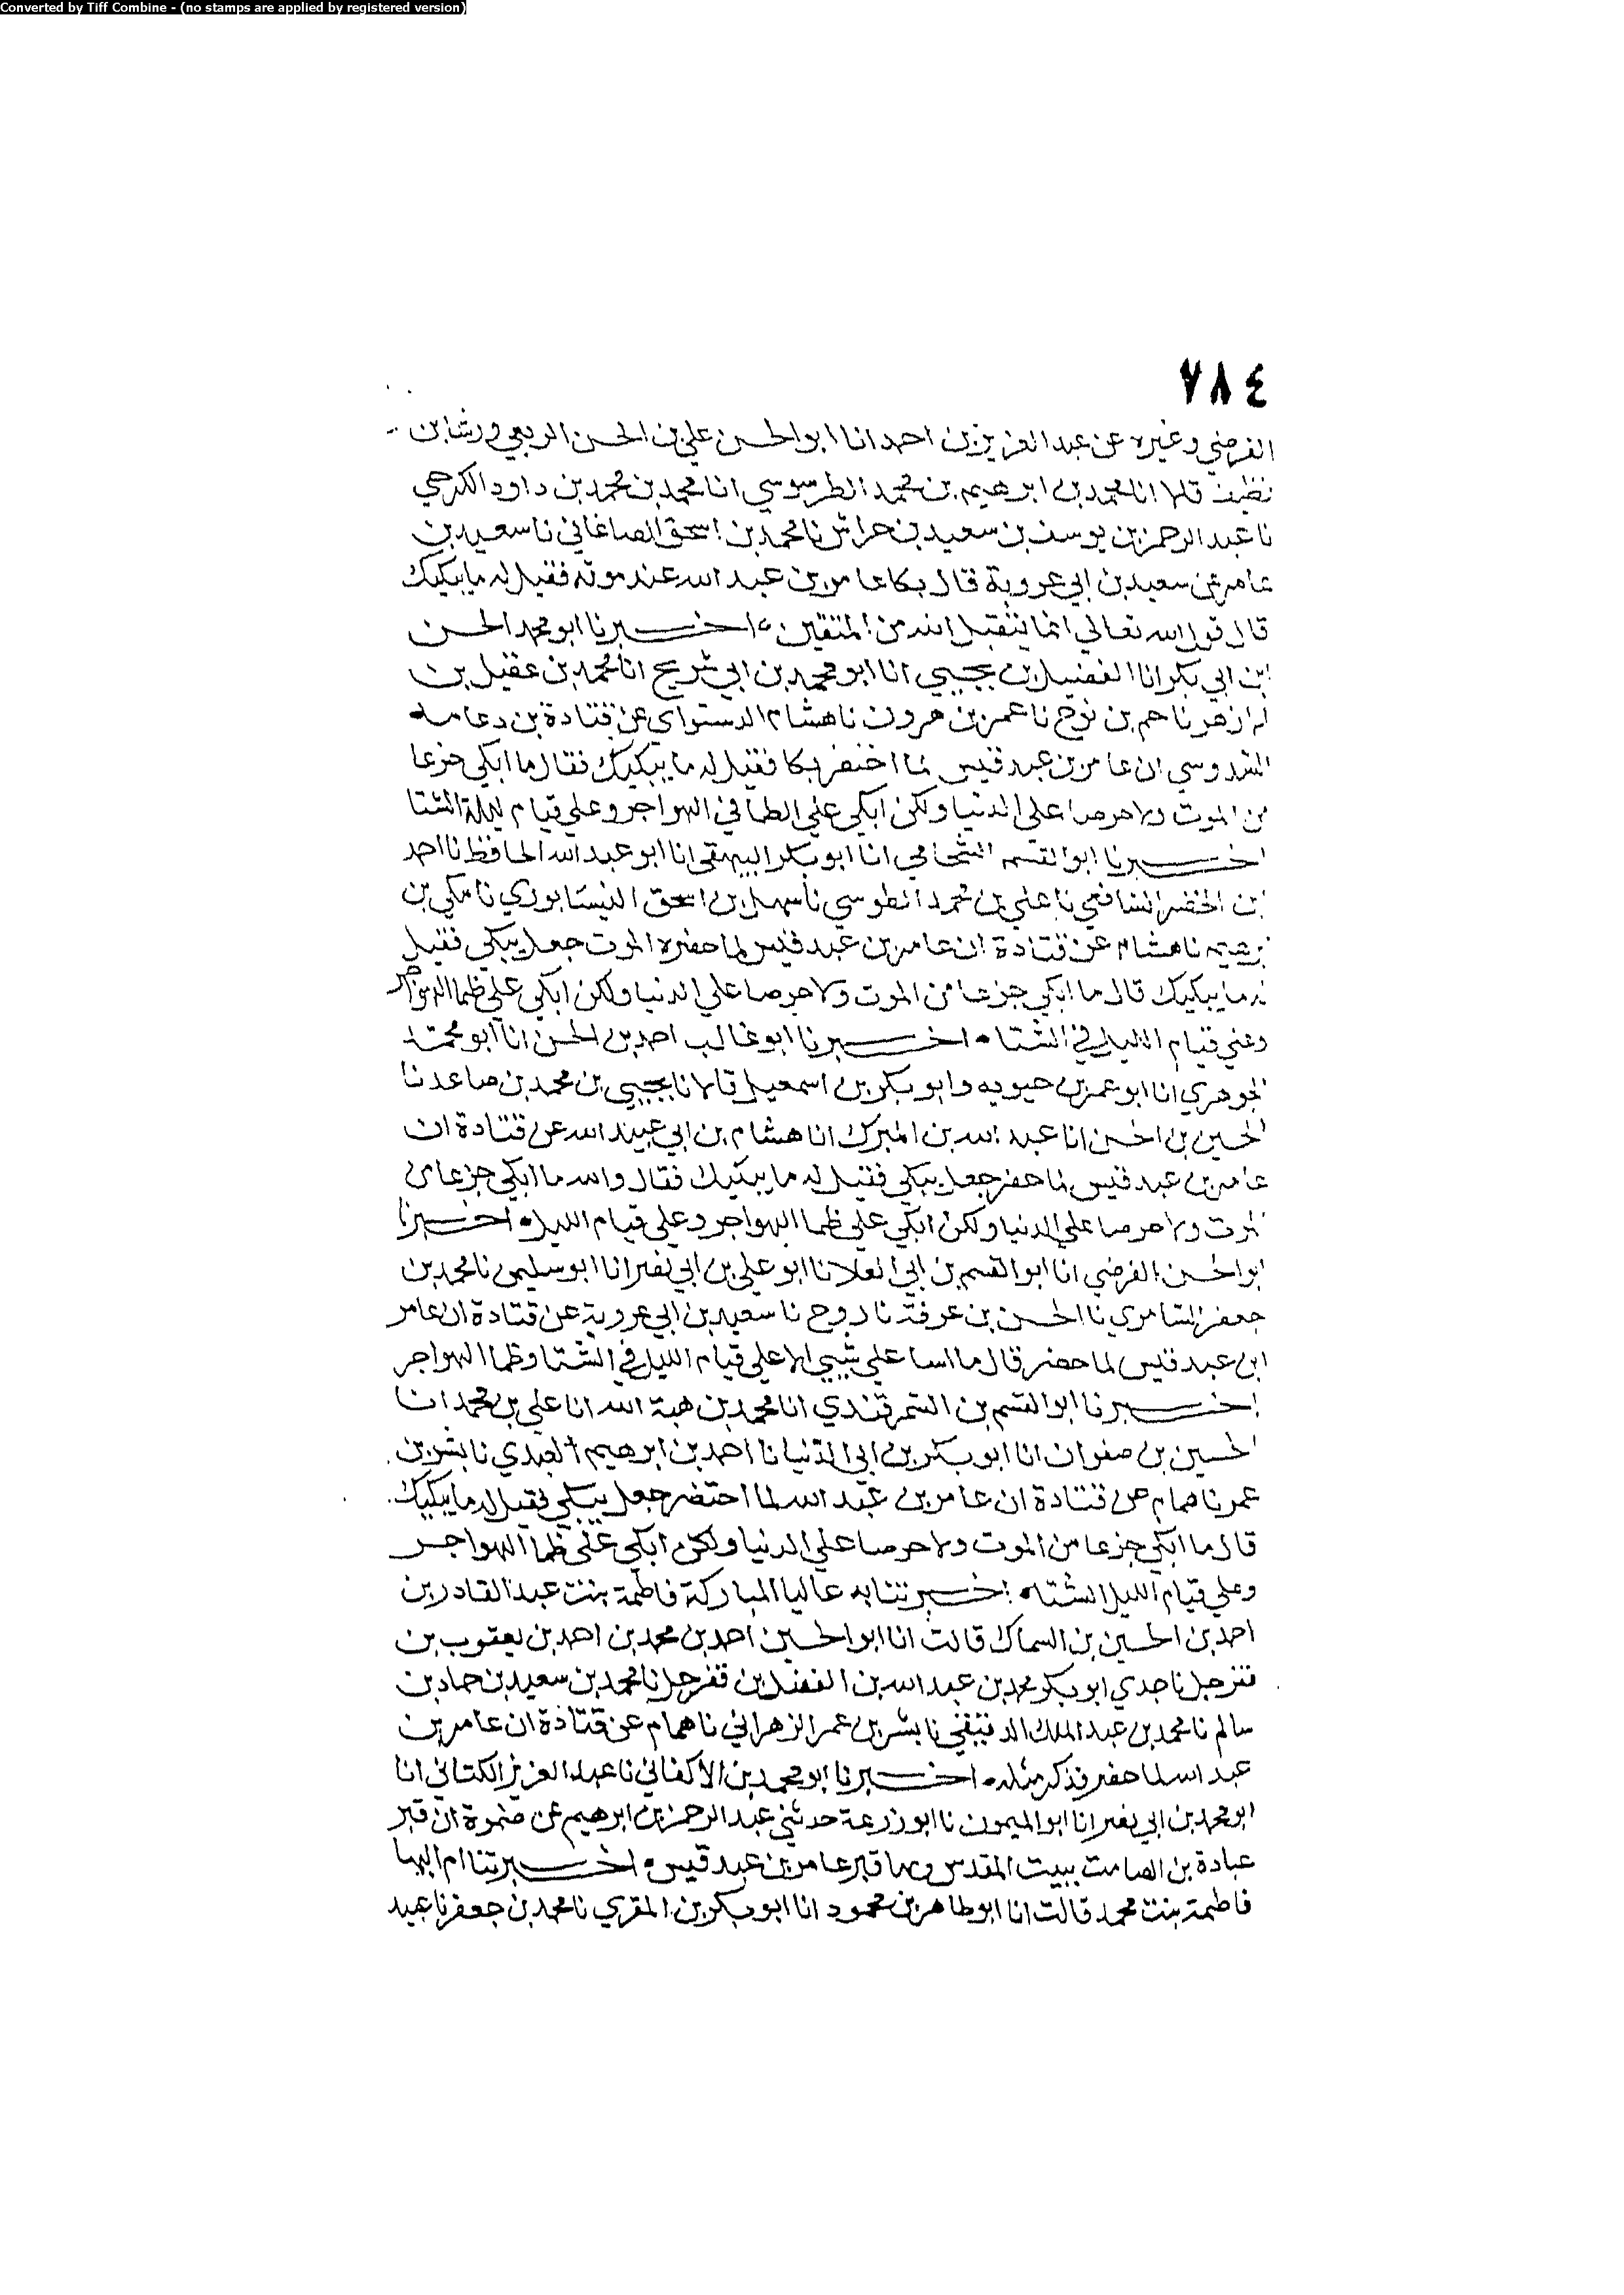 Converted by Tiff Combine - (no stamps are applied by registered version)
٧٨٤
الفرضي وغيره عن عبد العزيز بن احمد انا ابو الحسن علي بن الحسن الربعي ورشا بن
نظيف قالا انا محمد بن ابرهيم بن محمد الطرسوسي انا محمد بن محمد بن داود الكرجي
نا عبد الرحمن بن يوسف بن سعيد بن خراش نا محمد بن اسحق الصاغاني نا سعيد بن
عامر عن سعيد بن ابي عروبة قال بكا عامر بن عبد الله عند موته فقيل له ما يبكيك
قال قول الله تعالى انما يتقبل الله من المتقين اخبرنا ابو محمد الحسن
ابن ابي بكر انا الفضيل بن يحيى انا ابو محمد بن ابي شريح انا محمد بن عقيل بن
الازهر نا حم بن نوح نا عمر بن هرون نا هشام الدستواى عن قتادة بن دعامه
السدوسي ان عامر بن عبد قيس لما احتضر بكا فقيل له ما يبكيك فقال ما ابكي جزعا
من الموت ولا حرصا على الدنيا ولكن ابكي علي الظما في الهواجر وعلي قيام ليلة الشتا
اخبرنا ابو القسم الشحامي انا ابو بكر البيهقي انا ابو عبد الله الحافظ نا احمد
بن الخضر الشافعي نا علي بن محمد الطوسي نا سهل بن اسحق النيسابوري نا مكي بن
ابرهيم نا هشام عن قتادة ان عامر بن عبد قيس لما حضره الموت جعل يبكي فقيل
له ما يبكيك قال ما ابكي جزعا من الموت ولا حرصا علي الدنيا ولكن ابكي علي ظما الهواجر
وعلي قيام الليل في الشتا اخبرنا ابو غالب احمد بن الحسن انا ابو محمد
الجوهري انا ابو عمر بن حيويه وابو بكر بن اسمعيل قالا نا يحيى بن محمد بن صاعد نا
الحسين بن الحسن انا عبد الله بن المبرك انا هشام بن ابي عبيد الله عن قتادة ان
عامر بن عبد قيس لما حضر جعل يبكي فقيل له ما يبكيك فقال والله ما ابكي جزعا من
الموت ولا حرصا علي الدنيا ولكن ابكي علي ظما الهواجر وعلي قيام الليل اخبرنا
ابو الحسن الفرضي انا ابو القسم بن ابي العلا نا ابو علي بن ابي نصر انا ابو سليمن نا محمد بن
جعفر السامري نا الحسن بن عرفة نا روح نا سعيد بن ابي عروبة عن قتادة ان عامر
ابن عبد قيس لما حضر قال ما اسا علي شيي الا علي قيام الليل في الشتا وظما الهواجر
اخبرنا ابو القسم بن السمرقندي انا محمد بن هبة الله انا علي بن محمد انا
الحسين بن صفوان انا ابو بكر بن ابي الدنيا نا احمد بن ابرهيم العبدي نا بشر بن
عمر نا همام عن قتادة ان عامر بن عبد الله لما احتضر جعل يبكي فقيل له ما يبكيك
قال ما ابكي جزعا من الموت ولا حرصا علي الدنيا ولكن ابكي علي ظما الهواجر
وعلي قيام الليل الشتا اخبرتنا به عاليا المباركة فاطمة بنت عبد القادر بن
احمد بن الحسين بن السماك قالت انا ابو الحسين احمد بن محمد بن احمد بن يعقوب بن
قفرجل نا جدي ابو بكر محمد بن عبد الله بن الفضل بن قفرجل نا محمد بن سعيد بن حماد بن
سالم نا محمد بن عبد الملك الدقيقي نا بشر بن عمر الزهراني نا همام عن قتادة ان عامر بن
عبد الله لما حضر فذكر مثله اخبرنا ابو محمد بن الاكفاني نا عبد العزيز الكتاني انا
ابو محمد بن ابي نصر انا ابو الميمون نا ابو زرعة حدثني عبد الرحمن بن ابرهيم عن ضمرة ان قبر
عبادة بن الصامت ببيت المقدس وبها قبر عامر بن عبد قيس اخبرتنا ام البها
فاطمة بنت محمد قالت انا ابو طاهر بن محمود انا ابو بكر بن المقري نا محمد بن جعفر نا عبيد